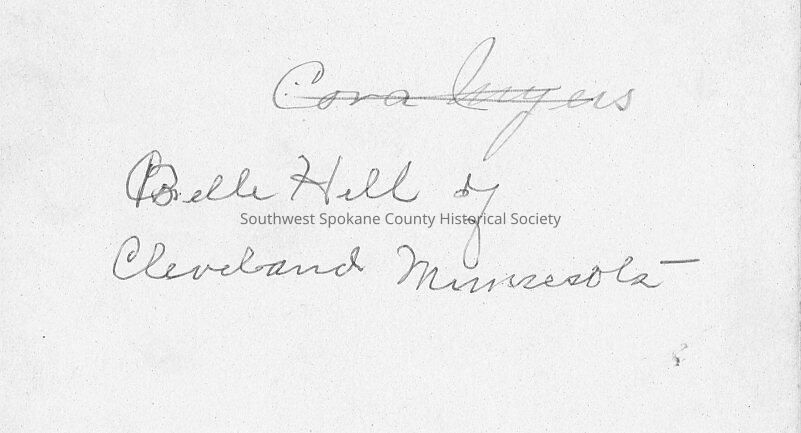 Cora Myers
Belle Hill of
Southwest Spokane County Historical Society
Cleveland Minnesota